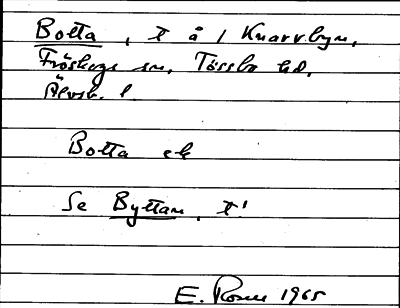 Botta, t å i Knarrbyn,
Fröskogs sn, Tössbo hd,
Älvsb. l.
Botta ek
Se Byttan, t!
E. Rosén 1965